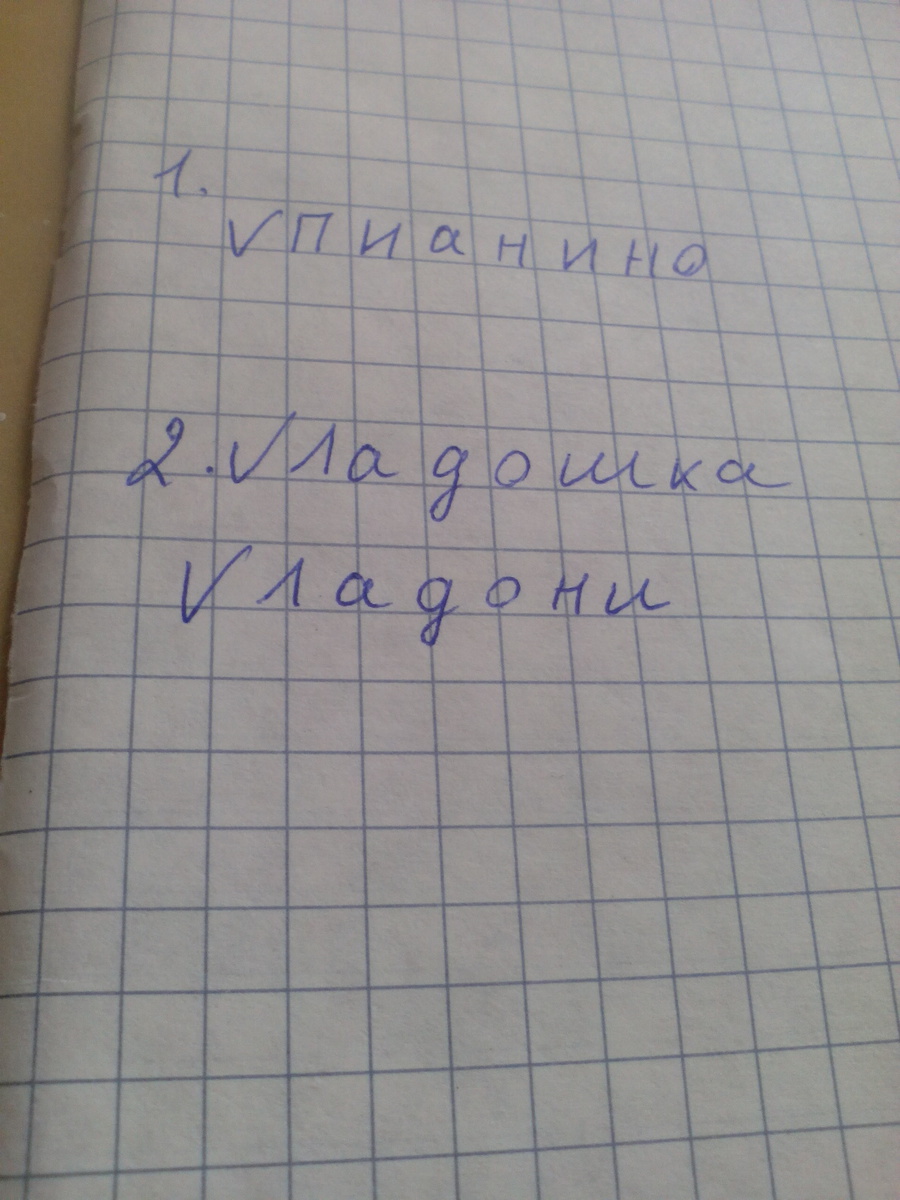 1.
√пианино
2. √ладошка
√ладони